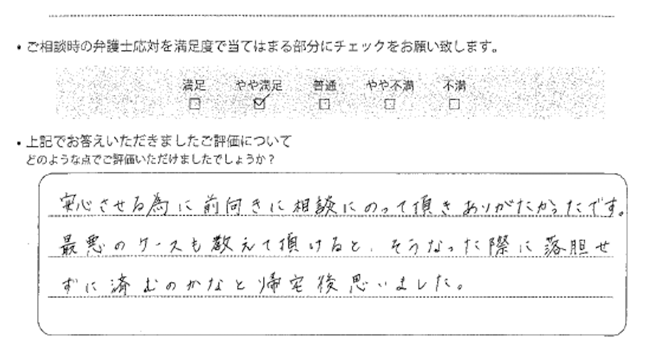 ・ご相談時の弁護士応対を満足度で当てはまる部分にチェックをお願い致します。
満足 やや満足 普通 やや不満 不満
□ ☑ □ □ □
・上記でお答えいただきましたご評価について
どのような点でご評価いただけましたでしょうか？
安心させる為に前向きに相談にのって頂きありがたかったです。
最悪のケースも教えて頂けると、そうなった際に落胆せ
ずに済むのかなと帰宅後思いました。